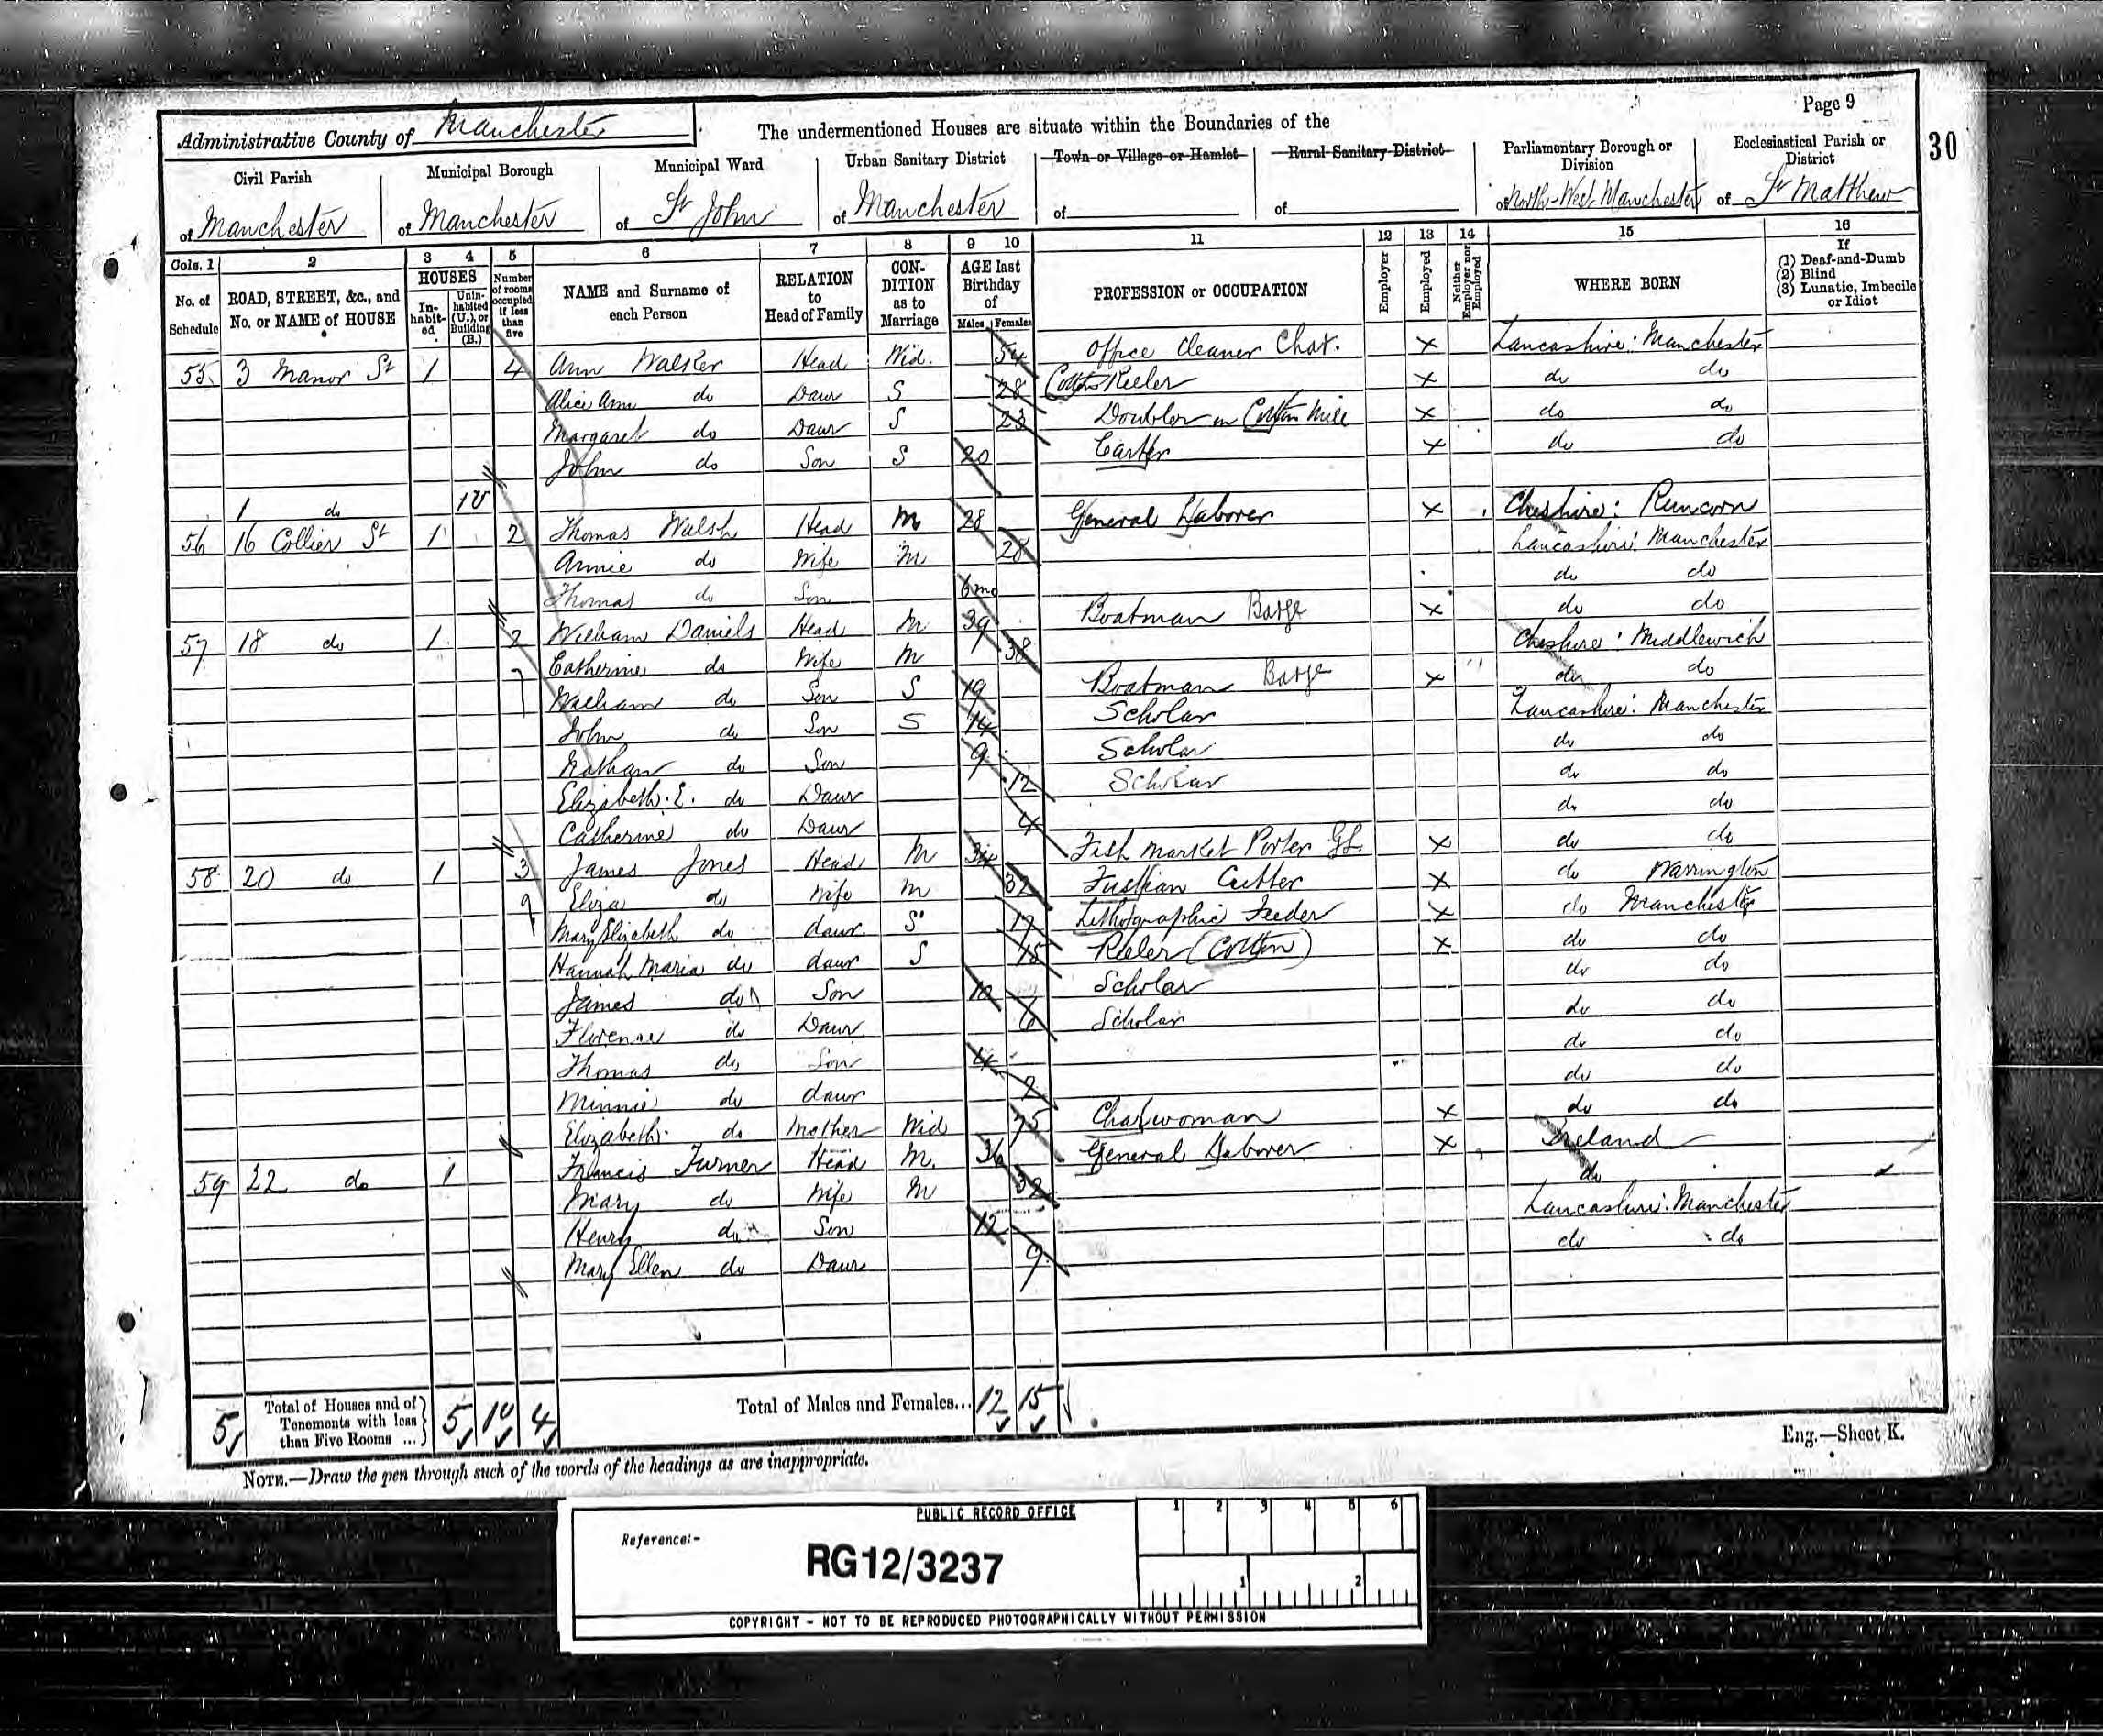 Page 9
30
Administrative County of Manchester
The undermentioned Houses are situate within the Boundaries of the
Civil Parish
of Manchester
Municipal Borough
of Manchester
Municipal Ward
of St John
Urban Sanitary District
of Manchester
Town or Village or Hamlet
of
Rural Sanitary District
of
Parliamentary Borough or Division
of North-West Manchester
Ecclesiastical Parish or District
of St Matthew
Cols. 1 2 3 4 5 6 7 8 9 10 11 12 13 14 15 16
No. of Schedule
ROAD, STREET, &c., and No. or NAME of HOUSE
HOUSES
In-habit-ed
Unin-habited (U.), or Building (B.)
Number of rooms occupied if less than five
NAME and Surname of each Person
RELATION to Head of Family
CON-DITION as to Marriage
AGE last Birthday of
Males Females
PROFESSION or OCCUPATION
Employer
Employed
Neither Employer nor Employed
WHERE BORN
If
(1) Deaf-and-Dumb
(2) Blind
(3) Lunatic, Imbecile or Idiot
55 3 Manor St 1 4 Ann Walker Head Wid. 54 Office Cleaner Char. X Lancashire: Manchester
Alice Ann do Daur S 28 Cotton Reeler X do do
Margaret do Daur S 23 Doubler in Cotton Mill X do do
John do Son S 20 Carter X do do
1 do 1U
56 16 Collier St 1 2 Thomas Walsh Head M 28 General Laborer X Cheshire: Runcorn
Annie do Wife M 28 Lancashire: Manchester
Thomas do Son 6mo do do
57 18 do 1 2 William Daniels Head M 39 Boatman Barge X do do
7 Catherine do Wife M 38 Cheshire: Middlewich
William do Son S 19 Boatman Barge X do do
John do Son S 14 Scholar Lancashire: Manchester
Nathan do Son 9 Scholar do do
Elizabeth. E. do Daur 12 Scholar do do
Catherine do Daur 4 do do
58 20 do 1 3 James Jones Head M 34 Fish Market Porter GL X do do
9 Eliza do Wife M 32 Fustian Cutter X do Warrington
Mary Elizabeth do daur. S 17 Lithographic Feeder X do Manchester
Hannah Maria do daur S 15 Reeler (Cotton) X do do
James do Son 10 Scholar do do
Florence do Daur 6 Scholar do do
Thomas do Son 4 do do
Minnie do daur 2 do do
Elizabeth do Mother Wid 75 Charwoman X do do
59 22 do 1 Francis Turner Head M. 36 General Laborer X Ireland
Mary do Wife M 32 do
Henry do Son 12 Lancashire: Manchester
Mary Ellen do Daur 9 do do
5 Total of Houses and of Tenements with less than Five Rooms ... 5 1U 4 Total of Males and Females... 12 15
Eng.—Sheet K.
NOTE.—Draw the pen through such of the words of the headings as are inappropriate.
PUBLIC RECORD OFFICE
Reference:-
RG12/3237
1 2 3 4 5 6
1 2
COPYRIGHT - NOT TO BE REPRODUCED PHOTOGRAPHICALLY WITHOUT PERMISSION